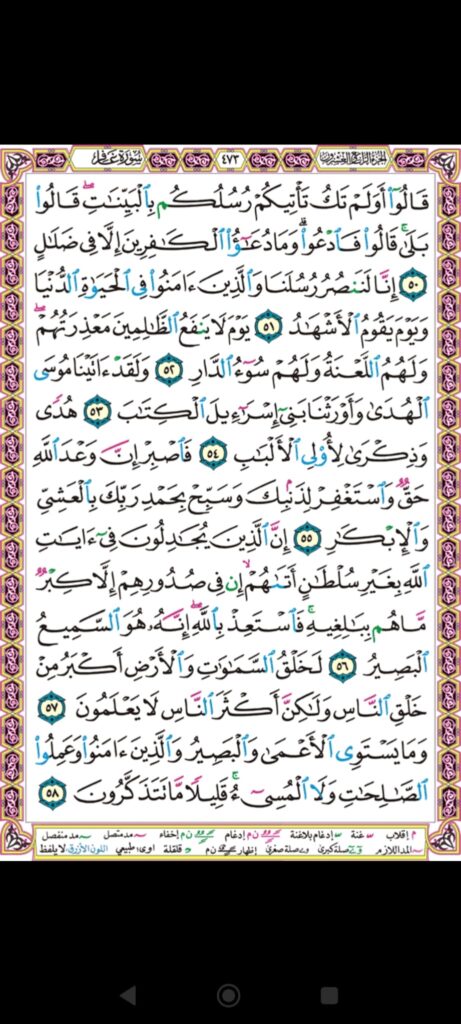 سورة غافر ٤٧٣ الجزء الرابع والعشرون
قَالُوٓاْ أَوَلَمْ تَكُ تَأْتِيكُمْ رُسُلُكُم بِٱلْبَيِّنَٰتِۖ قَالُواْ
بَلَىٰۚ قَالُواْ فَٱدْعُواْۗ وَمَا دُعَٰٓؤُاْ ٱلْكَٰفِرِينَ إِلَّا فِى ضَلَٰلٍ
٥٠ إِنَّا لَنَنصُرُ رُسُلَنَا وَٱلَّذِينَ ءَامَنُواْ فِى ٱلْحَيَوٰةِ ٱلدُّنْيَا
وَيَوْمَ يَقُومُ ٱلْأَشْهَٰدُ ٥١ يَوْمَ لَا يَنفَعُ ٱلظَّٰلِمِينَ مَعْذِرَتُهُمْۖ
وَلَهُمُ ٱللَّعْنَةُ وَلَهُمْ سُوٓءُ ٱلدَّارِ ٥٢ وَلَقَدْ ءَاتَيْنَا مُوسَى
ٱلْهُدَىٰ وَأَوْرَثْنَا بَنِىٓ إِسْرَٰٓءِيلَ ٱلْكِتَٰبَ ٥٣ هُدًى
وَذِكْرَىٰ لِأُوْلِى ٱلْأَلْبَٰبِ ٥٤ فَٱصْبِرْ إِنَّ وَعْدَ ٱللَّهِ
حَقٌّ وَٱسْتَغْفِرْ لِذَنۢبِكَ وَسَبِّحْ بِحَمْدِ رَبِّكَ بِٱلْعَشِىِّ
وَٱلْإِبْكَٰرِ ٥٥ إِنَّ ٱلَّذِينَ يُجَٰدِلُونَ فِىٓ ءَايَٰتِ
ٱللَّهِ بِغَيْرِ سُلْطَٰنٍ أَتَىٰهُمْۙ إِن فِى صُدُورِهِمْ إِلَّا كِبْرٌ
مَّا هُم بِبَٰلِغِيهِۚ فَٱسْتَعِذْ بِٱللَّهِۖ إِنَّهُۥ هُوَ ٱلسَّمِيعُ
ٱلْبَصِيرُ ٥٦ لَخَلْقُ ٱلسَّمَٰوَٰتِ وَٱلْأَرْضِ أَكْبَرُ مِنْ
خَلْقِ ٱلنَّاسِ وَلَٰكِنَّ أَكْثَرَ ٱلنَّاسِ لَا يَعْلَمُونَ ٥٧
وَمَا يَسْتَوِى ٱلْأَعْمَىٰ وَٱلْبَصِيرُ وَٱلَّذِينَ ءَامَنُواْ وَعَمِلُواْ
ٱلصَّٰلِحَٰتِ وَلَا ٱلْمُسِىٓءُۚ قَلِيلًا مَّا تَتَذَكَّرُونَ ٥٨
م إقلاب غنة إدغام بلاغنة ن م إدغام ن م إخفاء مد متصل مد منفصل
المد اللازم صلة كبرى صلة صغرى إظهار ن م قلقلة اوى: طبيعي اللون الأزرق: لا يلفظ